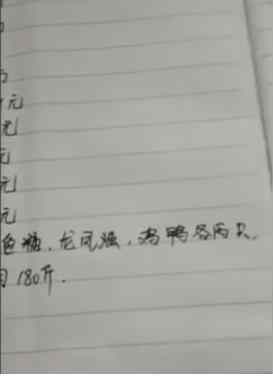 元
元
元
元
元
色糖、龙凤强，鸡鸭各两只，
180斤.